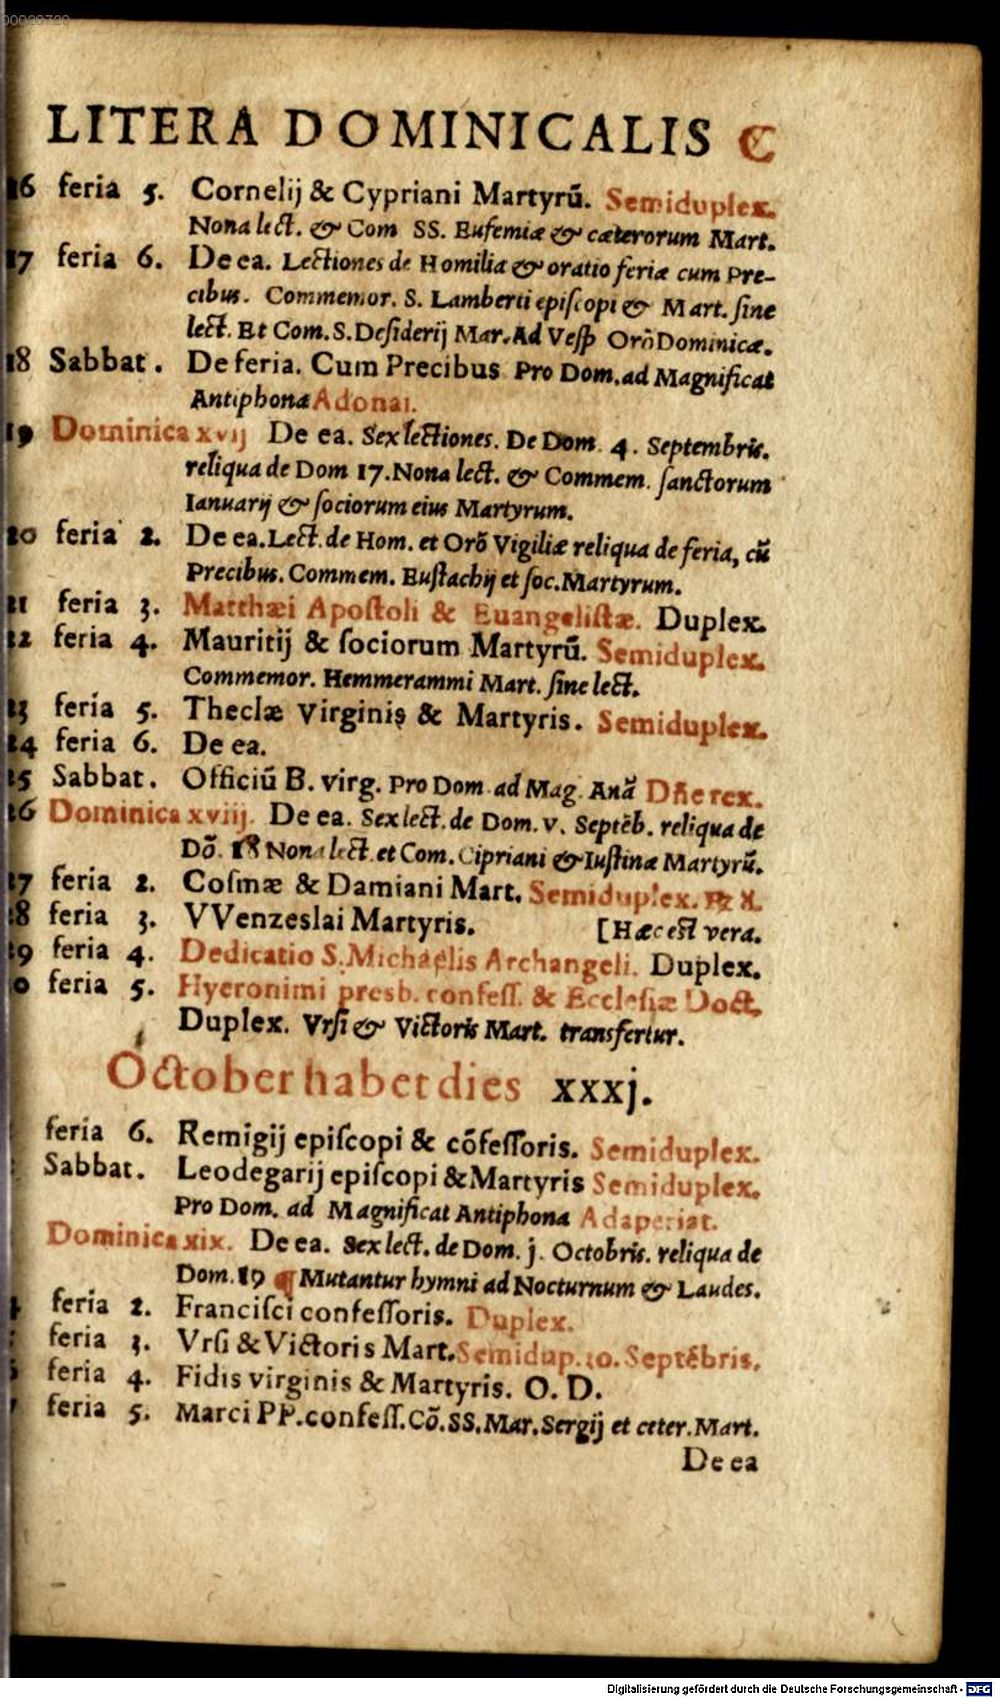 00020720
LITERA DOMINICALIS C
16 feria 5. Cornelij & Cypriani Martyrũ. Semiduplex.
Nona lect. & Com SS. Eufemiæ & cæterorum Mart.
17 feria 6. De ea. Lectiones de Homilia & oratio feriæ cum pre-
cibus. Commemor. S. Lamberti episcopi & Mart. sine
lect. Et Com. S. Desiderij Mar. Ad Vesp Orõ Dominicæ.
18 Sabbat. De feria. Cum Precibus Pro Dom. ad Magnificat
Antiphona Adonai.
19 Dominica xvij De ea. Sex lectiones. De Dom. 4. Septembris.
reliqua de Dom 17. Nona lect. & Commem. sanctorum
Ianuarij & sociorum eius Martyrum.
20 feria 2. De ea. Lect. de Hom. et Orõ Vigiliæ reliqua de feria, cũ
Precibus. Commem. Eustachij et soc. Martyrum.
21 feria 3. Matthæi Apostoli & Euangelistæ. Duplex.
22 feria 4. Mauritij & sociorum Martyrũ. Semiduplex.
Commemor. Hemmerammi Mart. sine lect.
23 feria 5. Theclæ Virginis & Martyris. Semiduplex.
24 feria 6. De ea.
25 Sabbat. Officiũ B. virg. Pro Dom. ad Mag. Anã Dñe rex.
26 Dominica xviij. De ea. Sex lect. de Dom. v. Septẽb. reliqua de
Dõ. 18 Nona lect. et Com. Cipriani & Iustinæ Martyrũ.
27 feria 2. Cosmæ & Damiani Mart. Semiduplex.
28 feria 3. VVenzeslai Martyris. [Hæc est vera.
29 feria 4. Dedicatio S. Michaelis Archangeli. Duplex.
0 feria 5. Hyeronimi presb. confess. & Ecclesiæ Doct.
Duplex. Vrsi & Victoris Mart. transfertur.
October habet dies xxxj.
feria 6. Remigij episcopi & cõfessoris. Semiduplex.
Sabbat. Leodegarij episcopi & Martyris Semiduplex.
Pro Dom. ad Magnificat Antiphona Adaperiat.
Dominica xix. De ea. Sex lect. de Dom. j. Octobris. reliqua de
Dom. 19 ¶ Mutantur hymni ad Nocturnum & Laudes.
4 feria 2. Francisci confessoris. Duplex.
feria 3. Vrsi & Victoris Mart. Semidup. 30. Septẽbris.
feria 4. Fidis virginis & Martyris. O. D.
feria 5. Marci PP. confess. Cõ. SS. Mar. Sergij et ceter. Mart.
De ea
Digitalisierung gefördert durch die Deutsche Forschungsgemeinschaft - DFG